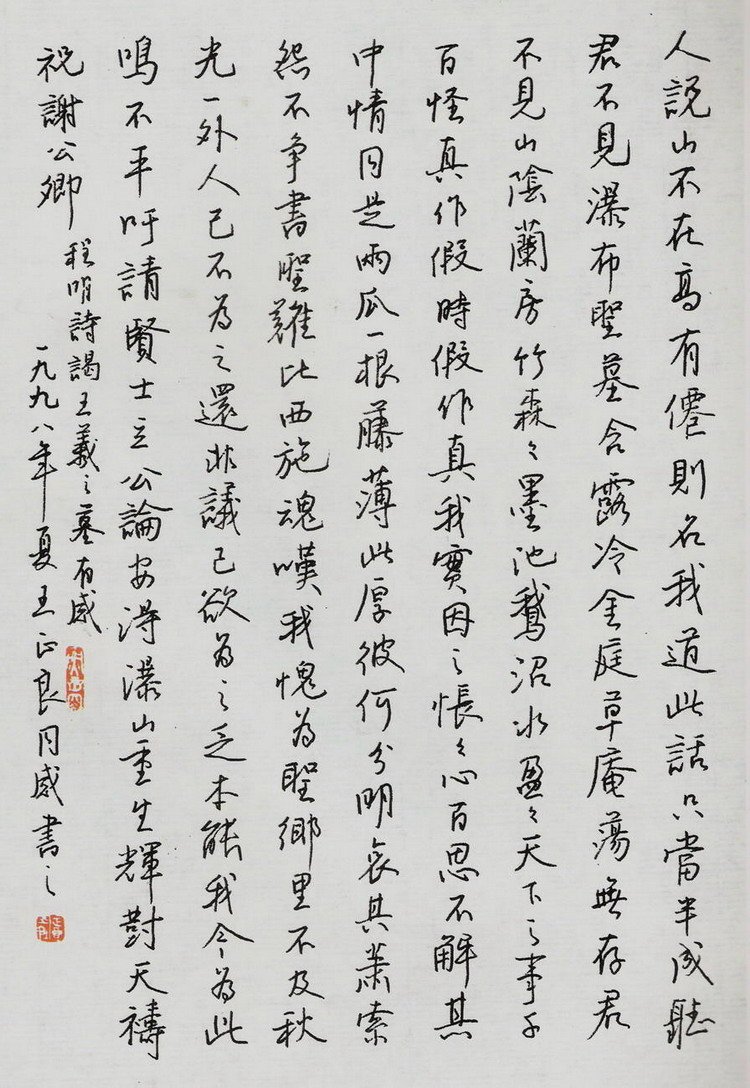 人說山不在高有僊則名我道此話只當半成聽
君不見瀑布聖墓含露冷金庭草庵蕩無存君
不見山陰蘭房竹森々墨池鵝沼水盈々天下之事千
百怪真作假時假作真我實因之悵々心百思不解其
中情同是兩瓜一根藤薄此厚彼何分明哀其蕭索
怨不爭書聖難比西施魂嘆我愧為聖鄉里不及秋
光一外人己不為之還非議己欲為之乏本能我今為此
鳴不平吁請賢士立公論安得瀑山重生輝對天禱
祝謝公卿
程明詩謁王羲之墓有感
一九九八年夏王正良同感書之